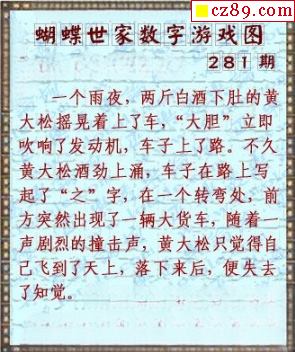 cz89.com
蝴蝶世家数字游戏图
281期
一个雨夜，两斤白酒下肚的黄
大松摇晃着上了车，“大胆”立即
吹响了发动机，车子上了路。不久
黄大松酒劲上涌，车子在路上写
起了“之”字，在一个转弯处，前
方突然出现了一辆大货车，随着一
声剧烈的撞击声，黄大松只觉得自
己飞到了天上，落下来后，便失去
了知觉。